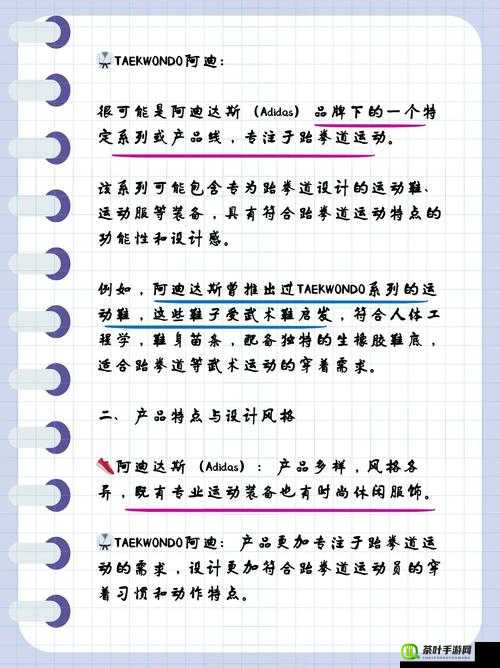 TAEKWONDO阿迪：
很可能是阿迪达斯（Adidas）品牌下的一个特
定系列或产品线，专注于跆拳道运动。
该系列可能包含专为跆拳道设计的运动鞋、
运动服等装备，具有符合跆拳道运动特点的
功能性和设计感。
例如，阿迪达斯曾推出过TAEKWONDO系列的运
动鞋，这些鞋子受武术鞋启发，符合人体工
程学，鞋身苗条，配备独特的生橡胶鞋底，
适合跆拳道等武术运动的穿着需求。
二、产品特点与设计风格
阿迪达斯（Adidas）：产品多样，风格各
异，既有专业运动装备也有时尚休闲服饰。
TAEKWONDO阿迪：产品更加专注于跆拳道运
动的需求，设计更加符合跆拳道运动员的穿
着习惯和动作特点。
茶叶手游网